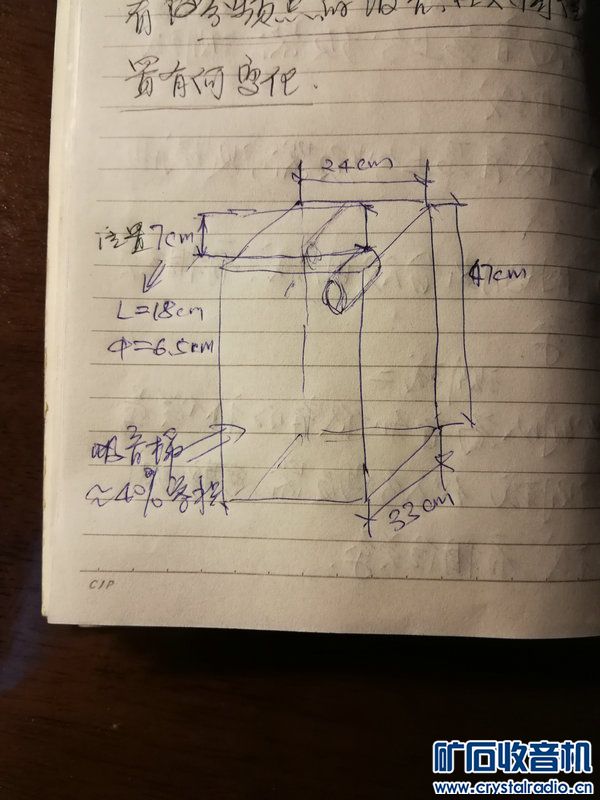 置有何变化.
24cm
位置7cm
47cm
L=18cm
Φ=6.5cm
吸音棉
≈40%容积
33cm
C/P
矿石收音机
www.crystalradio.cn